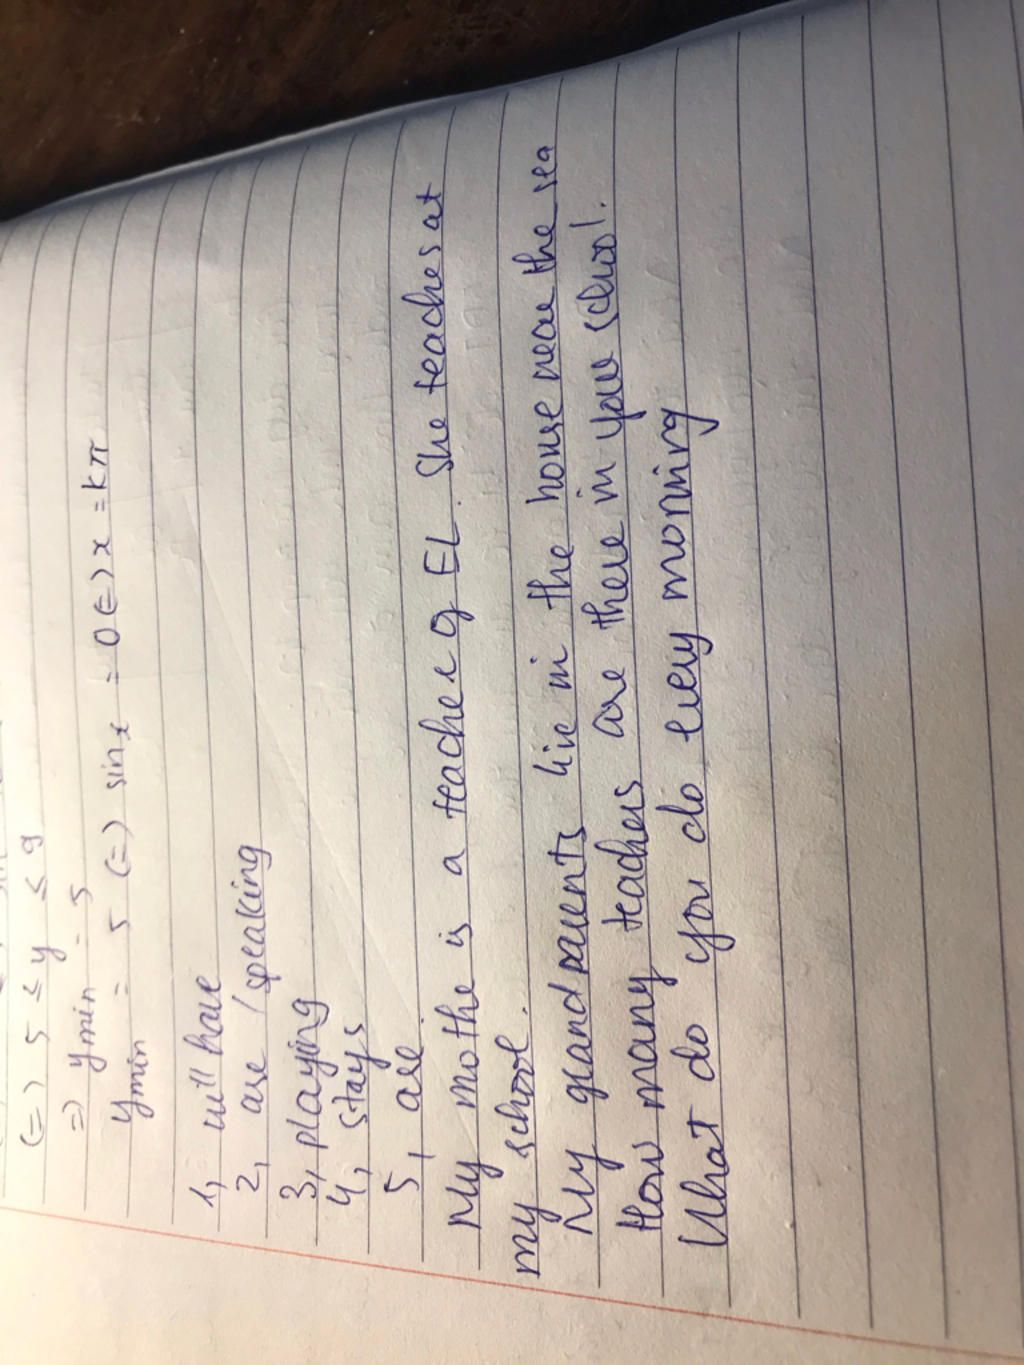 (=) 5 ≤ y ≤ 9
=) ymin = 5
ymin = 5 (=) sinx = 0 (=) x = kπ
1, will have
2, are / speaking
3, playing
4, stays
5, are
My mothe is a teacher of EL. She teaches at
my school.
My grandparents live in the house near the sea
How many teachers are there in your school.
What do you do every morning